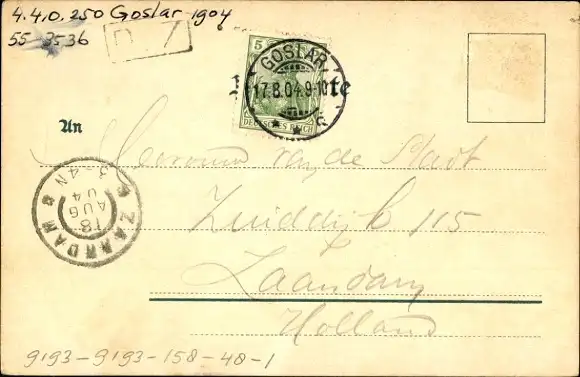 4.4.0.250 Goslar 1904
55-3536
D 7
5
DEUTSCHES REICH
GOSLAR
17.8.04.9-10
te
An
van de Stadt
Zuiddijk 115
Zaandam
Holland
ZAANDAM
18
AUG
04
3-4N
9193-9193-158-48-1